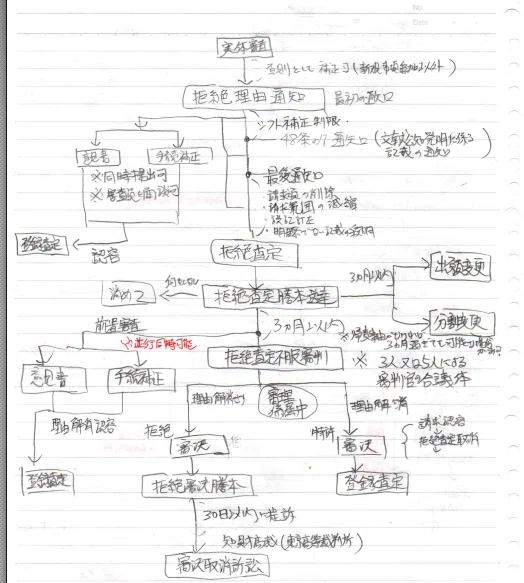 No.
Date
実体審査
原則として補正可(新規事項追加以外)
拒絶理由通知
最初の通知
シフト補正制限
48条の7通知(文献公知発明に係る
記載の通知)
意見書
手続補正
※同時提出可
※審査官と面談可
最後通知
・請求項の削除
・請求範囲の減縮
・誤記訂正
・明瞭でない記載の釈明
登録査定
認容
拒絶査定
3ヵ月以内
出願変更
分割変更
諦める
拒絶査定謄本送達
3ヵ月以内
前置審査
※並行同時可能
拒絶査定不服審判
※3人又は5人による
審判官の合議体
意見書
手続補正
理由解消せず
審理
係属中
理由解消
理由解消認容
拒絶
審決
特許
審決
請求認容
拒絶査定取消
登録査定
拒絶審決謄本
登録査定
30日以内に提訴
知財高裁(東京高等裁判所)
審決取消訴訟